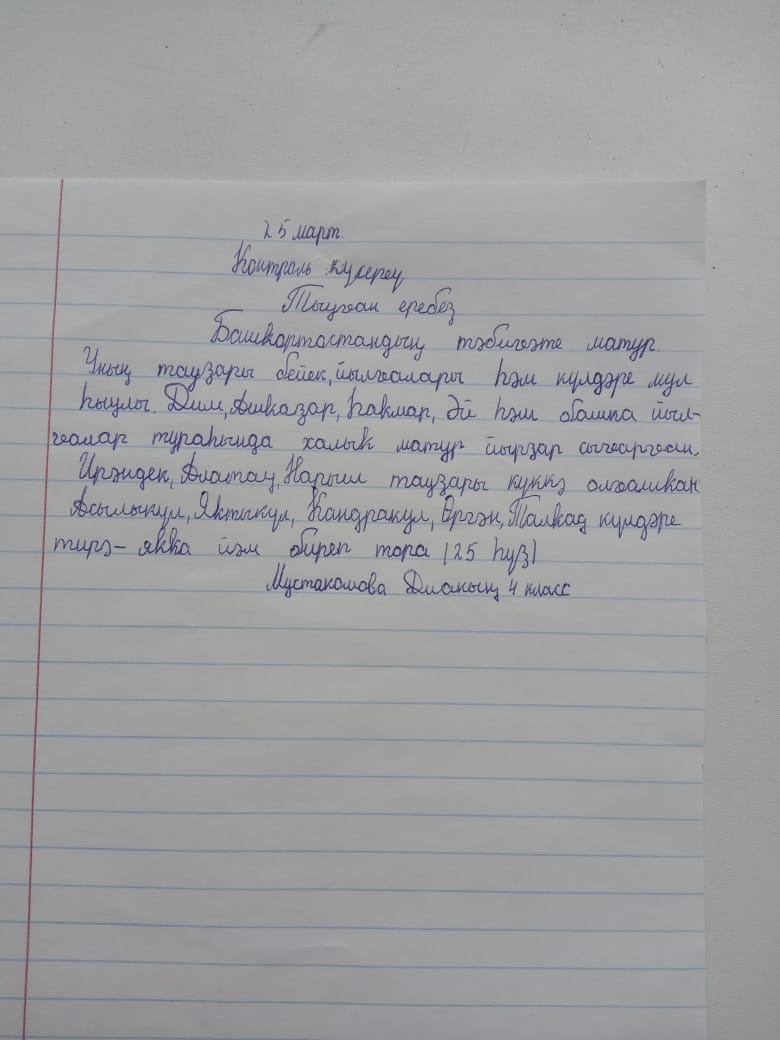 25 март.
Контроль күсереү
Тыуған еребеҙ
Башҡортостандың тәбиғәте матур.
Уның тауҙары бейек, йылғалары һәм күлдәре мул
һыулы. Дим, Ашкаҙар, Һаҡмар, Әй һәм башҡа йыл-
ғалар тураһында халыҡ матур йырҙар сығарған.
Ирәндек, Алатау, Нарыш тауҙары күккә олғашҡан
Асылыкүл, Яктыкүл, Кандракүл, Өргән, Талкаҫ күлдәре
тирә-яҡҡа йәм биреп тора (25 һүҙ)
Мустакомова Дианың 4 класс